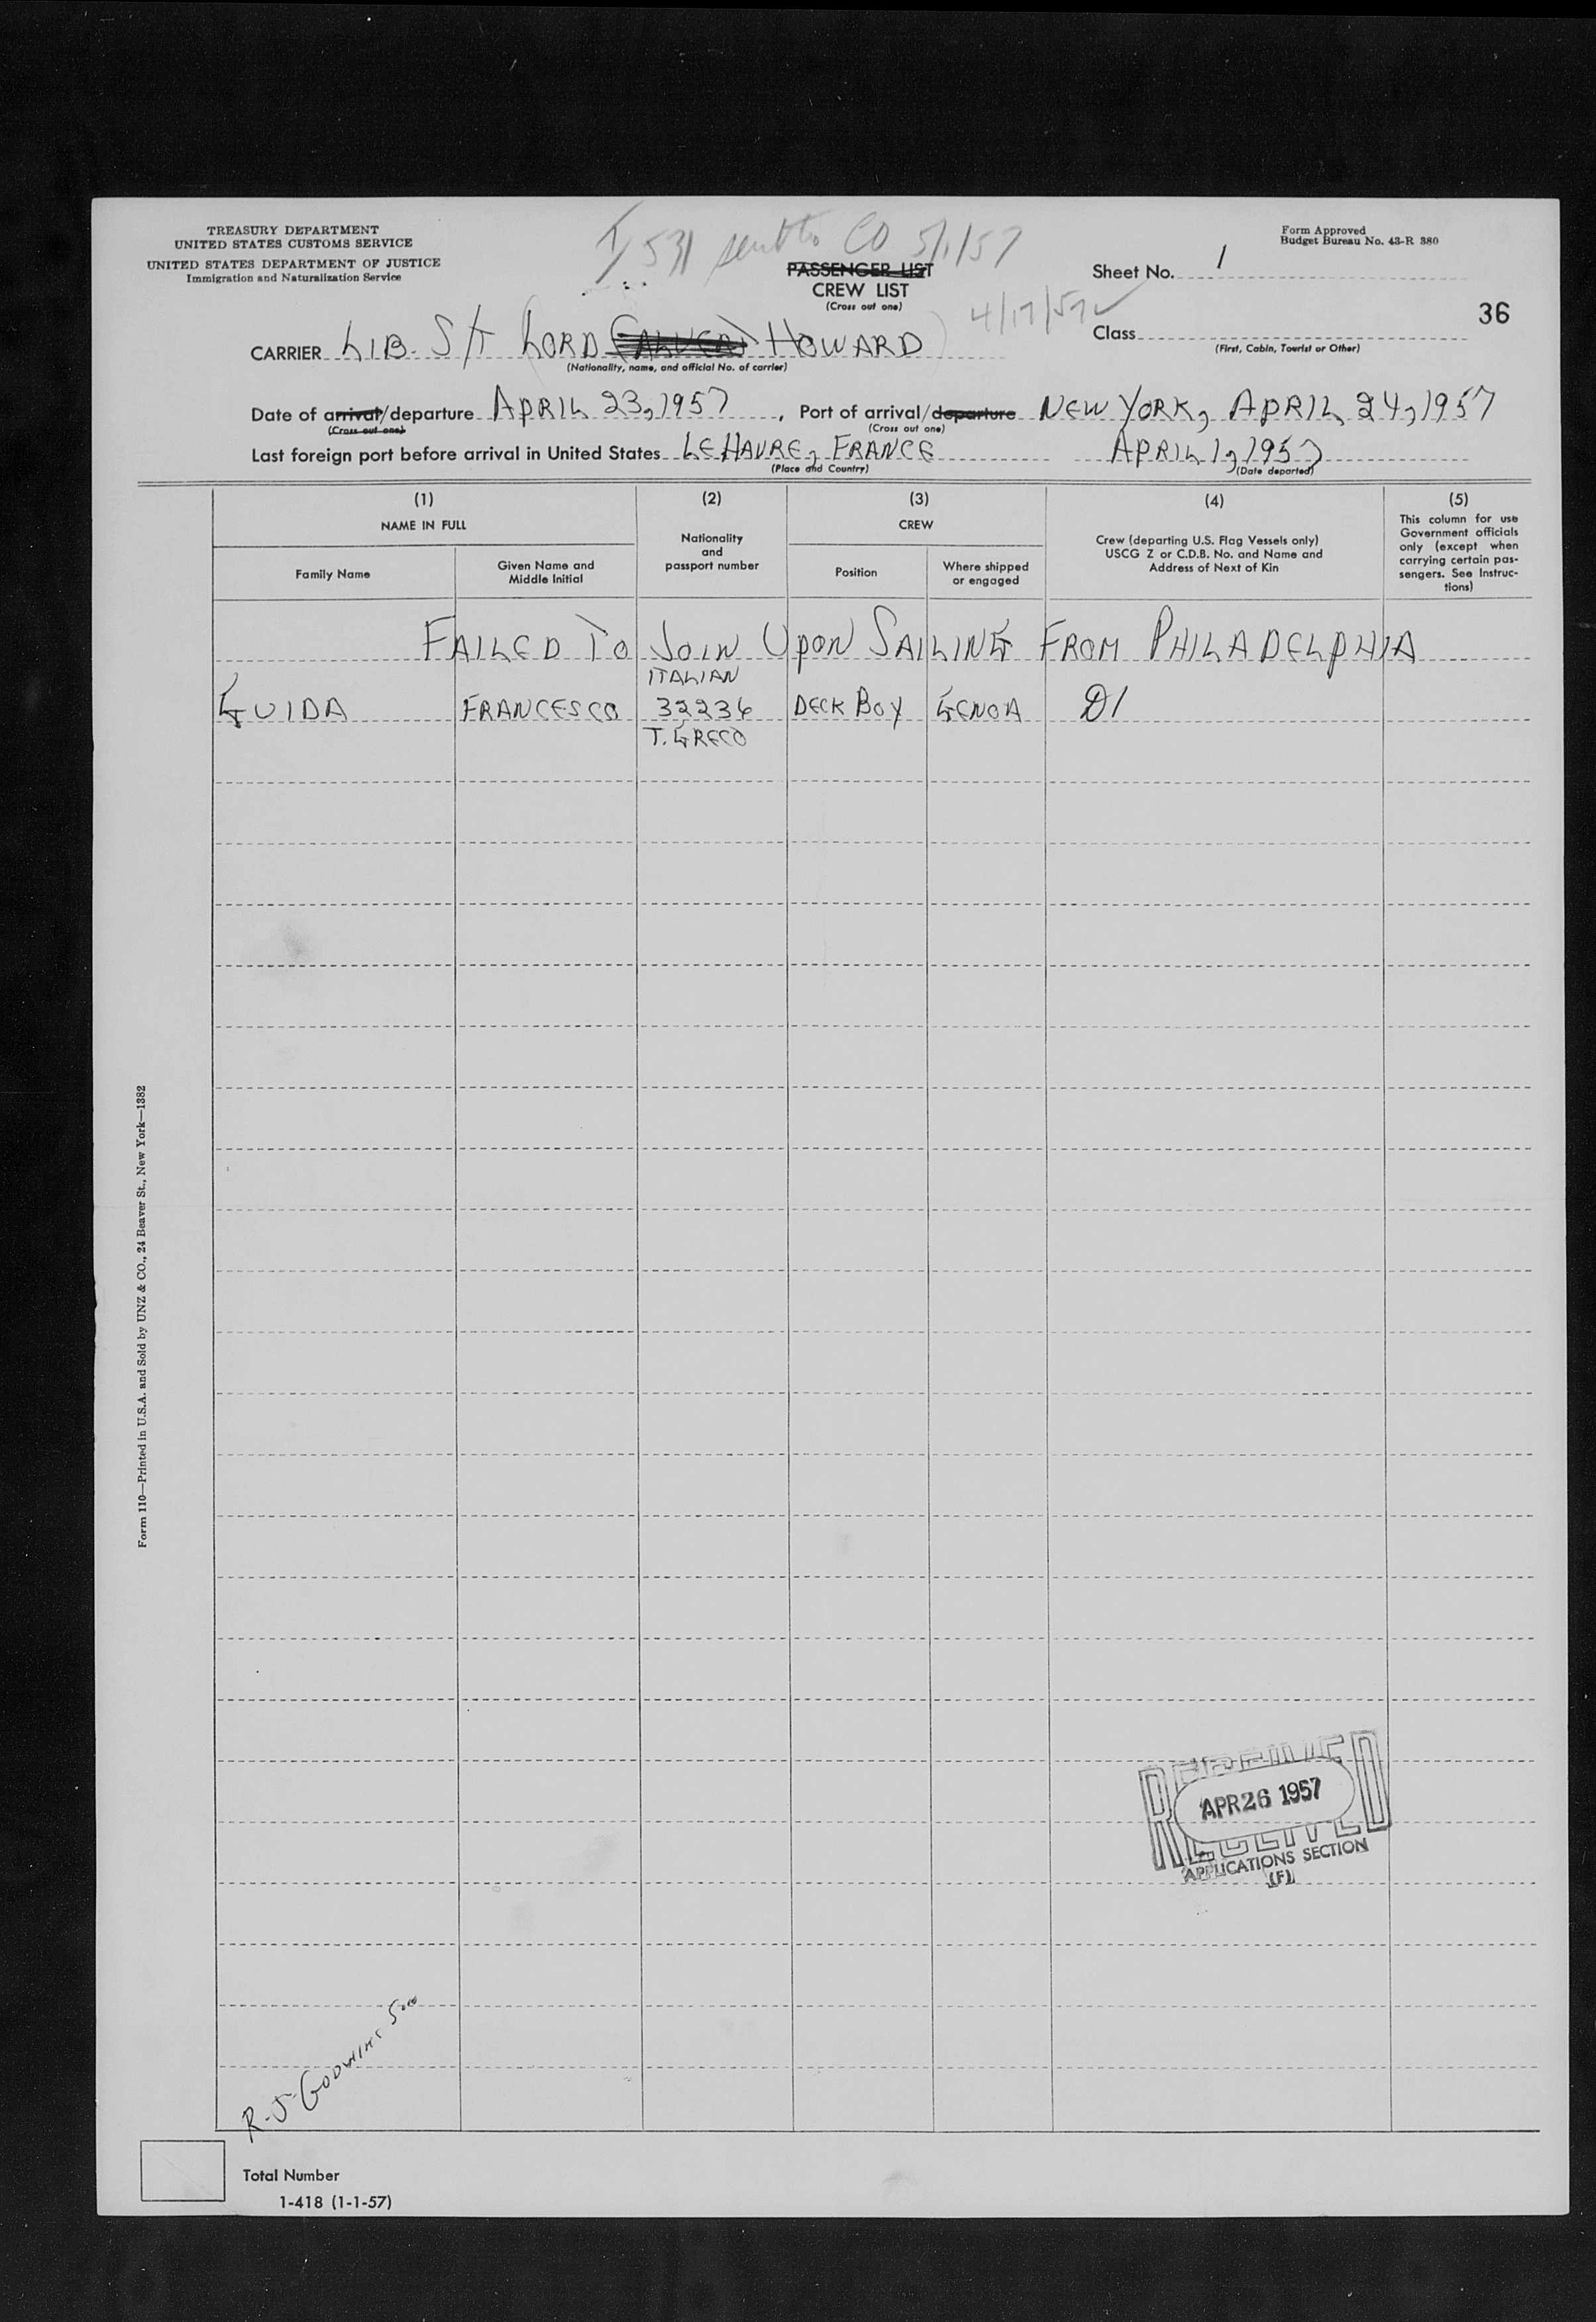 TREASURY DEPARTMENT
UNITED STATES CUSTOMS SERVICE
UNITED STATES DEPARTMENT OF JUSTICE
Immigration and Naturalization Service
I/531 sent to CO 5/1/57
PASSENGER LIST
CREW LIST
(Cross out one)
Form Approved
Budget Bureau No. 43-R 380
Sheet No. 1
4/17/57
36
Class
(First, Cabin, Tourist or Other)
CARRIER LIB. S/T LORD HOWARD
(Nationality, name, and official No. of carrier)
Date of arrival/departure APRIL 23, 1957, Port of arrival/departure NEW YORK, APRIL 24, 1957
(Cross out one) (Cross out one)
Last foreign port before arrival in United States LE HAVRE, FRANCE APRIL 1, 1957
(Place and Country) (Date departed)
(1) (2) (3) (4) (5)
NAME IN FULL
Family Name
Given Name and
Middle Initial
Nationality
and
passport number
CREW
Position
Where shipped
or engaged
Crew (departing U.S. Flag Vessels only)
USCG Z or C.D.B. No. and Name and
Address of Next of Kin
This column for use
Government officials
only (except when
carrying certain pas-
sengers. See Instruc-
tions)
FAILED TO JOIN UPON SAILING FROM PHILADELPHIA
ITALIAN
GUIDA FRANCESCO 32236 DECK BOY GENOA D1
T. GRECO
Form 110—Printed in U.S.A. and Sold by UNZ & CO., 24 Beaver St., New York—1382
RECEIVED
APR 26 1957
RECEIVED
APPLICATIONS SECTION
(F)
R-J-GODWINS
Total Number
1-418 (1-1-57)